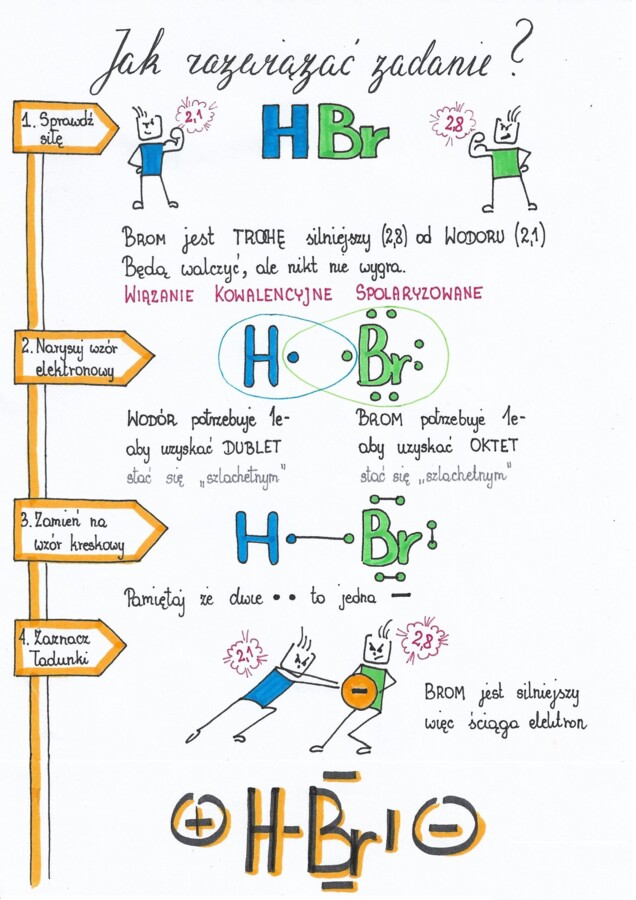 Jak rozwiązać zadanie?
1. Sprawdź
siłę
2,1
HBr
2,8
BROM jest TROHĘ silniejszy (2,8) od WODORU (2,1)
Będą walczyć, ale nikt nie wygra.
WIĄZANIE KOWALENCYJNE SPOLARYZOWANE
2. Narysuj wzór
elektronowy
H Br
WODÓR potrzebuje 1e-
aby uzyskać DUBLET
stać się „szlachetnym"
BROM potrzebuje 1e-
aby uzyskać OKTET
stać się „szlachetnym"
3. Zamień na
wzór kreskowy
H Br
Pamiętaj że dwie • • to jedna —
4. Zaznacz
Ładunki
2,1
2,8
-
BROM jest silniejszy
więc ściąga elektron
+ H-Br -